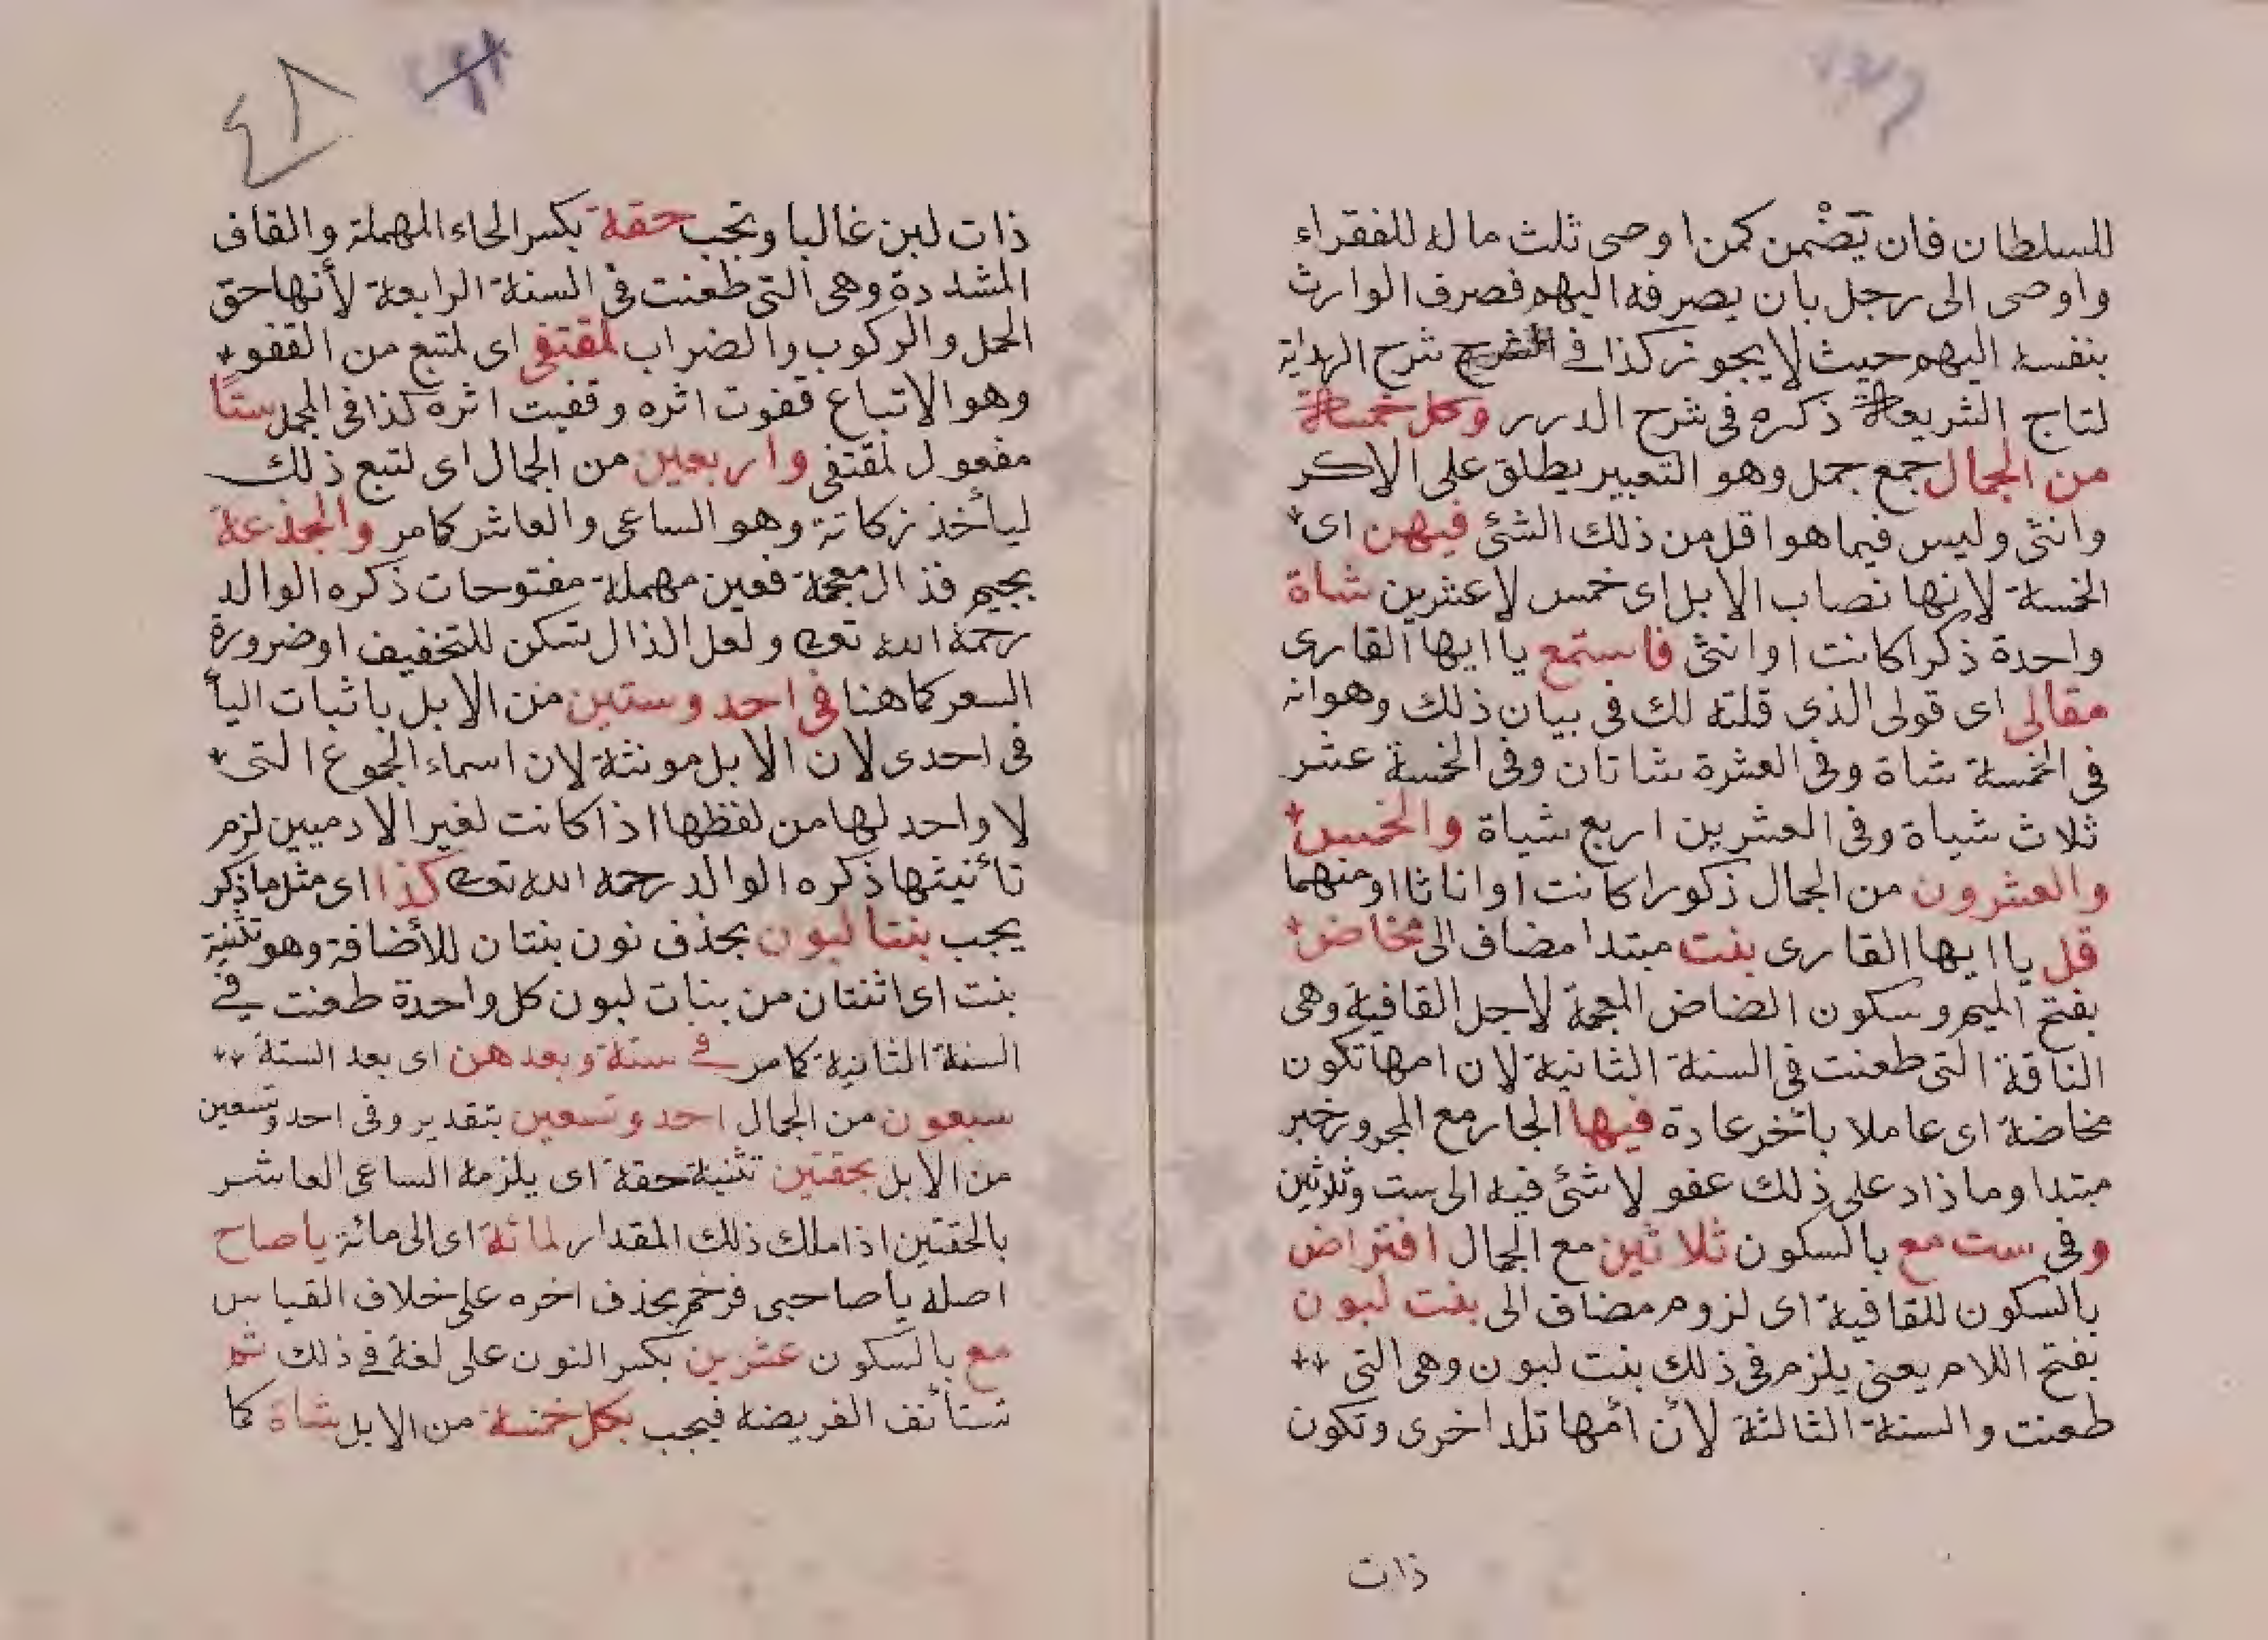 للسلطان فان تضْمن كمن اوصى ثلث ماله للفقراء
واوصى الى رجل بان يصرفه اليهم فصرف الوارث
بنفسه اليهم حيث لا يجوز كذا فى شرح الهداية
لتاج الشريعة ذكره فى شرح الدرر وكل خمسة
من الجمال جمع جمل وهو التعبير يطلق على الاكر
وانثى وليس فيما هو اقل من ذلك الشئ فيهن اى
الخمسة لانها نصاب الابل اى خمس لا عشرين شاة
واحدة ذكرا كانت او انثى فاستمع يا ايها القارى
مقالى اى قولى الذى قلته لك فى بيان ذلك وهو انه
فى الخمسة شاة وفى العشرة شاتان وفى الخمسة عشر
ثلاث شياة وفى العشرين اربع شياة والخمس
والعشرون من الجمال ذكورا كانت او اناثا او منهما
قل يا ايها القارى بنت مبتدا مضاف الى مخاض
بفتح الميم وسكون الضاض المعجمة لاجل القافية وهى
الناقة التى طعنت فى السنة الثانية لان امها تكون
مخاضة اى عاملا باخر عادة فيها الجار مع المجرور خبر
مبتدا وما ذاد على ذلك عفو لا شئ فيه الى ست وثلاثين
وفى ست مع بالسكون ثلاثين مع الجمال افتراض
بالسكون للقافية اى لزوم مضاف الى بنت لبون
بفتح اللام يعنى يلزم فى ذلك بنت لبون وهى التى
طعنت والسنة الثالثة لأن أمها تلد اخرى وتكون
ذات
٤٨
ذات لبن غالبا وتجب حقة بكسر الحاء المهملة والقاف
المشددة وهى التى طعنت فى السنة الرابعة لأنها حق
الحمل والركوب والضراب لمقتفى اى لمتبع من القفو
وهو الاتباع قفوت اثره وقفيت اثره كذا فى المجمل ستا
مفعول لمقتفى واربعين من الجمال اى لتبع ذلك
ليأخذ زكاتة وهو الساعى والعاشر كما مر والجذعة
بجيم فذال معجمة فعين مهملة مفتوحات ذكره الوالد
رحمة الله تعالى ولعل الذال تسكن للتخفيف او ضرورة
السعر كما هنا فى احد وستين من الابل باثبات اليأ
فى احدى لان الابل مونثة لان اسماء الجموع التى
لا واحد لها من لفظها اذا كانت لغير الادميين لزم
تأنيثها ذكره الوالد رحمه الله تعالى كذا اى مثل ما ذكر
يجب بنتا لبون بحذف نون بنتان للأضافة وهو تثنية
بنت اى اثنتان من بنات لبون كل واحدة طعنت فى
السنة الثانية كما مر فى ستة وبعد هن اى بعد الستة
سبعون من الجمال احد وتسعين بتقدير وفى احد وتسعين
من الابل بحقتين تثنية حقة اى يلزمه الساعى العاشر
بالحقتين اذا ملك ذلك المقدار لمائة اى الى مائة ياصاح
اصله ياصاحبى فرخم بحذف اخره على خلاف القياس
مع بالسكون عشرين بكسر النون على لغة فى ذلك ثم
تستأنف الفريضة فيجب بكل خمسة من الابل شاة كما